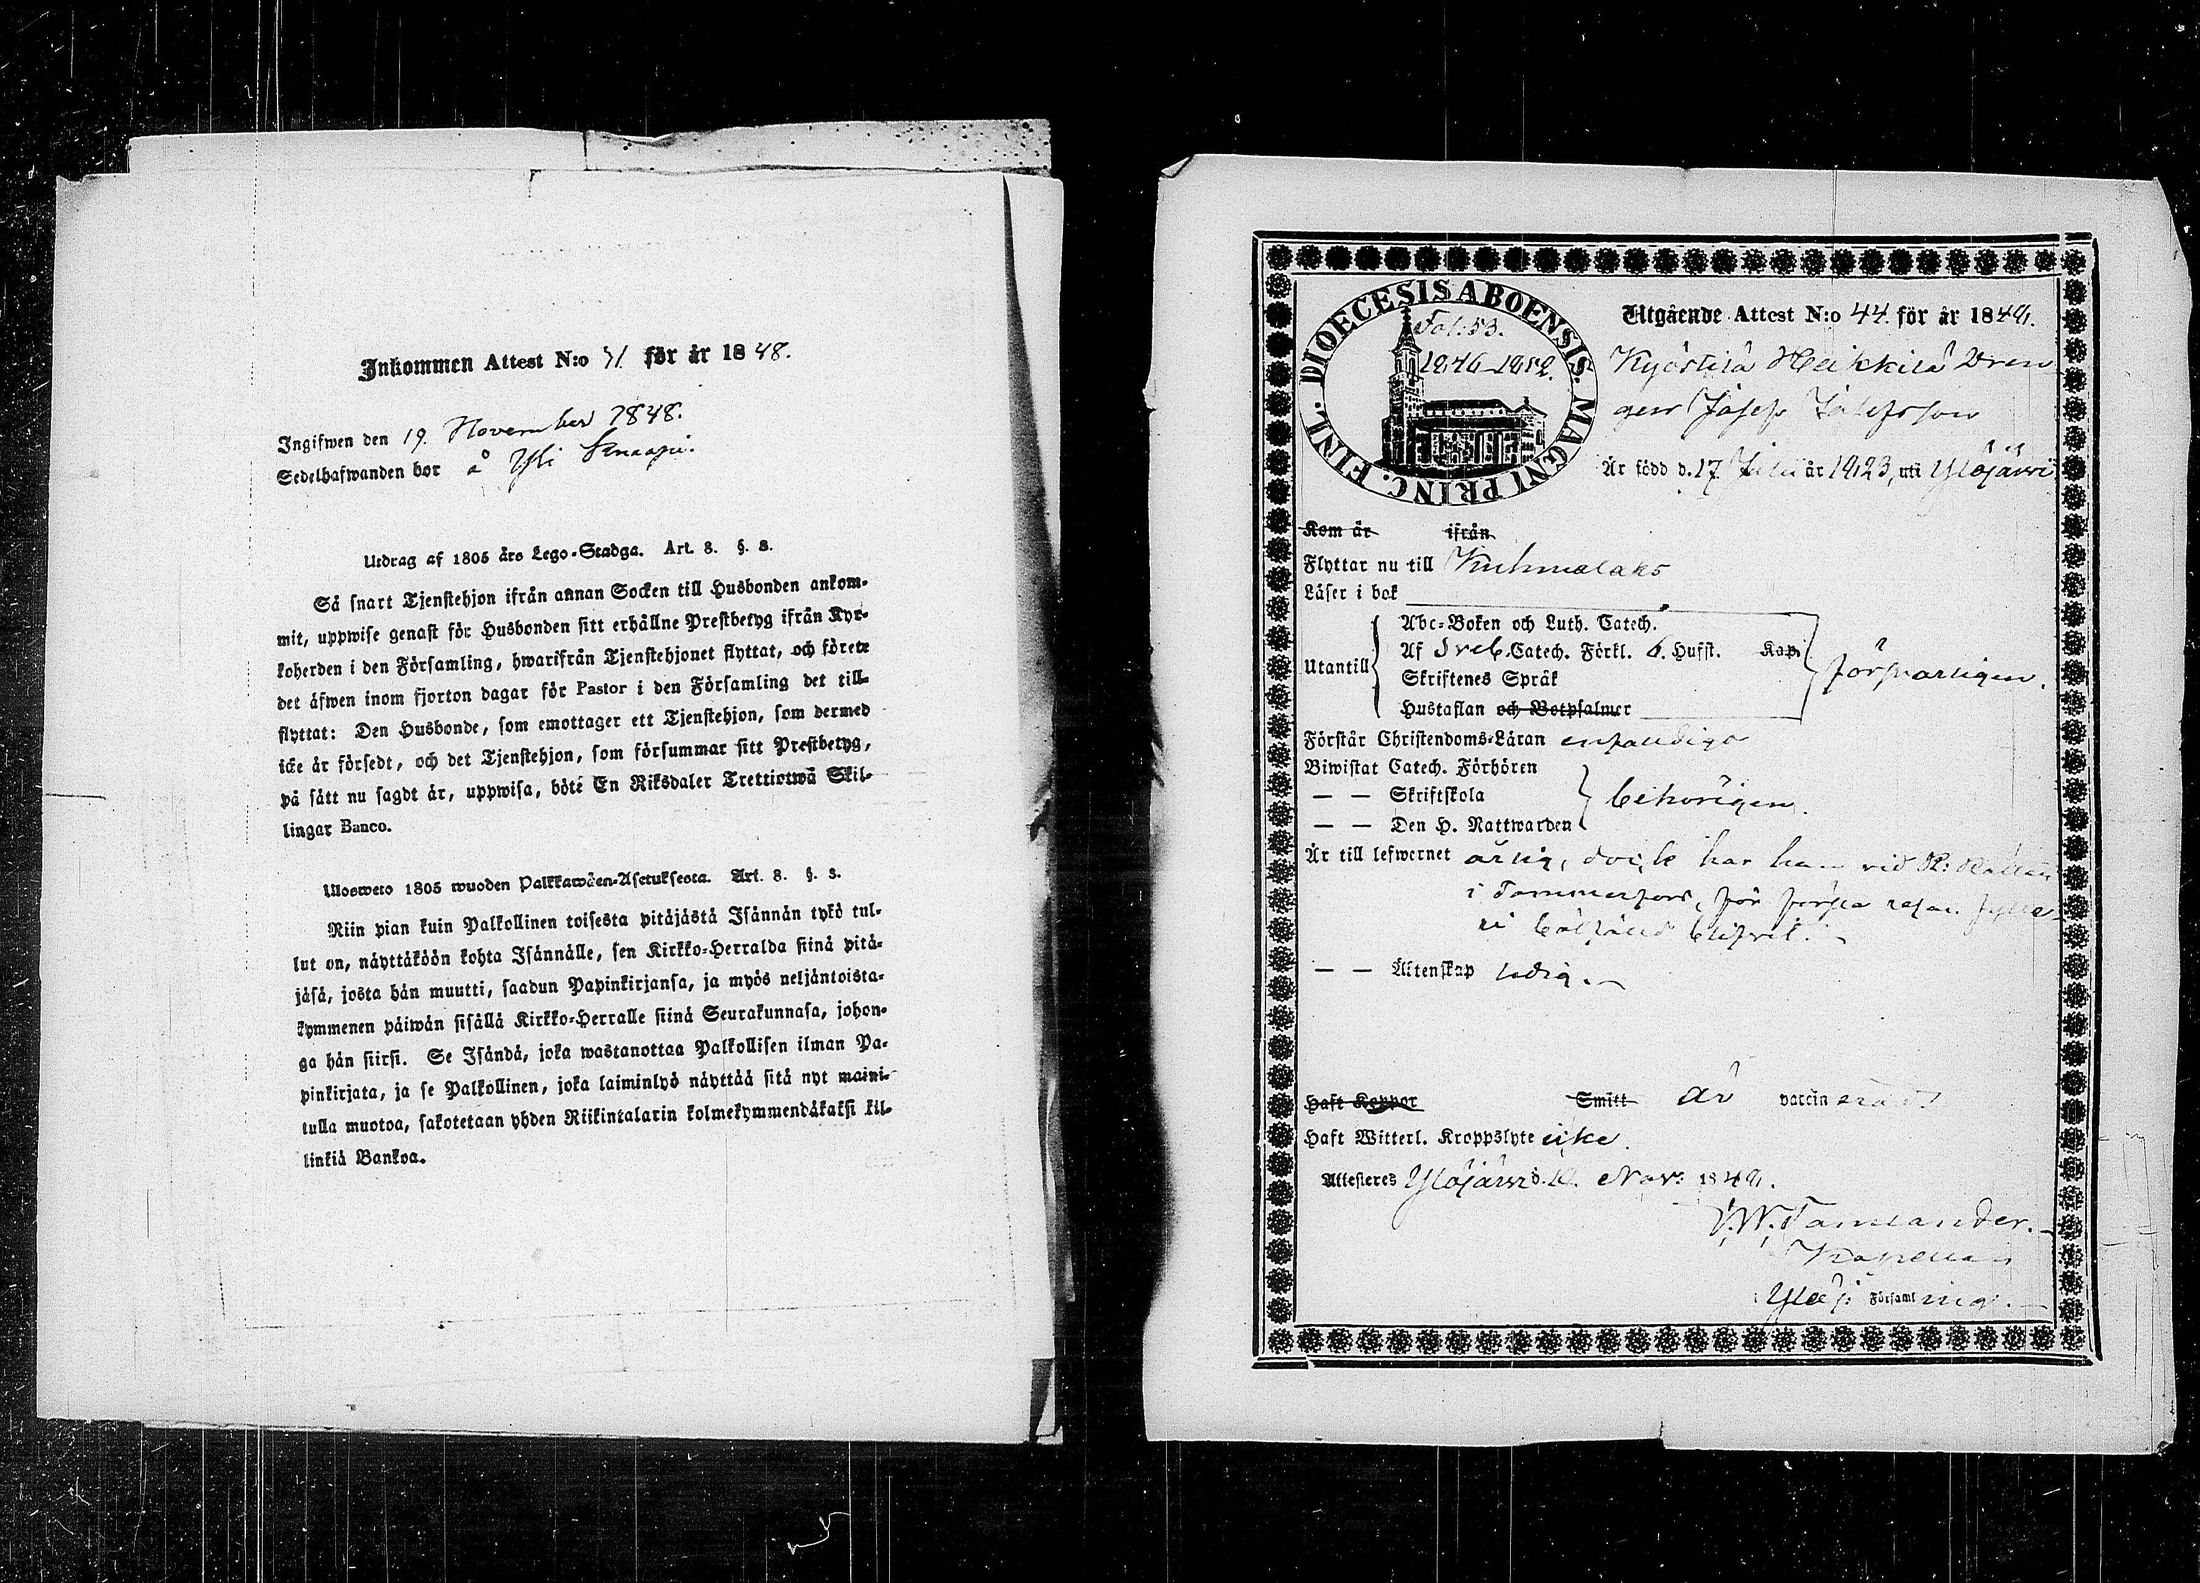 Inkommen Attest N:o 31 för år 1848.
Ingifwen den 19. November 1848.
Sedelhafwanden bor å Yli Knaapi.
Utdrag af 1805 års Lego-Stadga. Art. 8. §. 3.
Så snart Tjenstehjon ifrån annan Socken till Husbonden ankom-
mit, uppwise genast för Husbonden sitt erhållne Prestbetyg ifrån Kyr-
koherden i den Församling, hwarifrån Tjenstehjonet flyttat, och förete
det äfwen inom fjorton dagar för Pastor i den Församling det till-
flyttat: Den Husbonde, som emottager ett Tjenstehjon, som dermed
icke är försedt, och det Tjenstehjon, som försummar sitt Prestbetyg,
på sätt nu sagdt är, uppwisa, böte En Riksdaler Trettiotwå Skil-
lingar Banco.
Ulosweto 1805 wuoden Palkkawäen-Asetuksesta. Art. 8. §. 3.
Niin pian kuin Palkollinen toisesta pitäjästä Isännän tykö tul-
lut on, näyttäköön kohta Isännälle, sen Kirkko-Herralda siinä pitä-
jäsä, josta hän muutti, saadun Papinkirjansa, ja myös neljäntoista-
kymmenen päiwän sisällä Kirkko-Herralle siinä Seurakunnasa, johon-
ga hän siirsi. Se Isändä, joka wastanottaa Palkollisen ilman Pa-
pinkirjata, ja se Palkollinen, joka laiminlyö näyttää sitä nyt maini-
tulla muotoa, sakotetaan yhden Riikintalarin kolmekymmendäkaksi kil-
linkiä Bankoa.
DIOECESIS ABOENSIS. MAGNI PRINC. FINL.
Fol: 53.
1846-1852.
Utgående Attest N:o 44. för år 1848.
Kyöstilä Heikkilä Dren
gen Josef Josefsson
Är född d. 17 Juli år 1823, uti Ylöjärwi
Kom år ifrån
Flyttar nu till Kuhmalaks
Läser i bok
Abc-Boken och Luth. Catech.
Utantill Af Sveb. Catech. Förkl. 6. Hufst. Kap.
Skriftenes Språk
Hustaflan och Botpsalmer
försvarligen.
Förstår Christendoms-Läran enfaldigt
Biwistat Catech. Förhören
— — Skriftskola behörigen.
— — Den H. Nattwarden
Är till lefwernet ärlig, dock har han vid
i Tammerfors, för första resan fylle
ri bötfälld blifvit.
— — Äktenskap ledig.
Haft Koppor Smitt är vaccinerad.
Haft Witterl. Kroppslyte icke.
Attesteras Ylöjärwi d. Nov: 1848.
Tamlander.
Kapellan
i Ylöj: Församling.